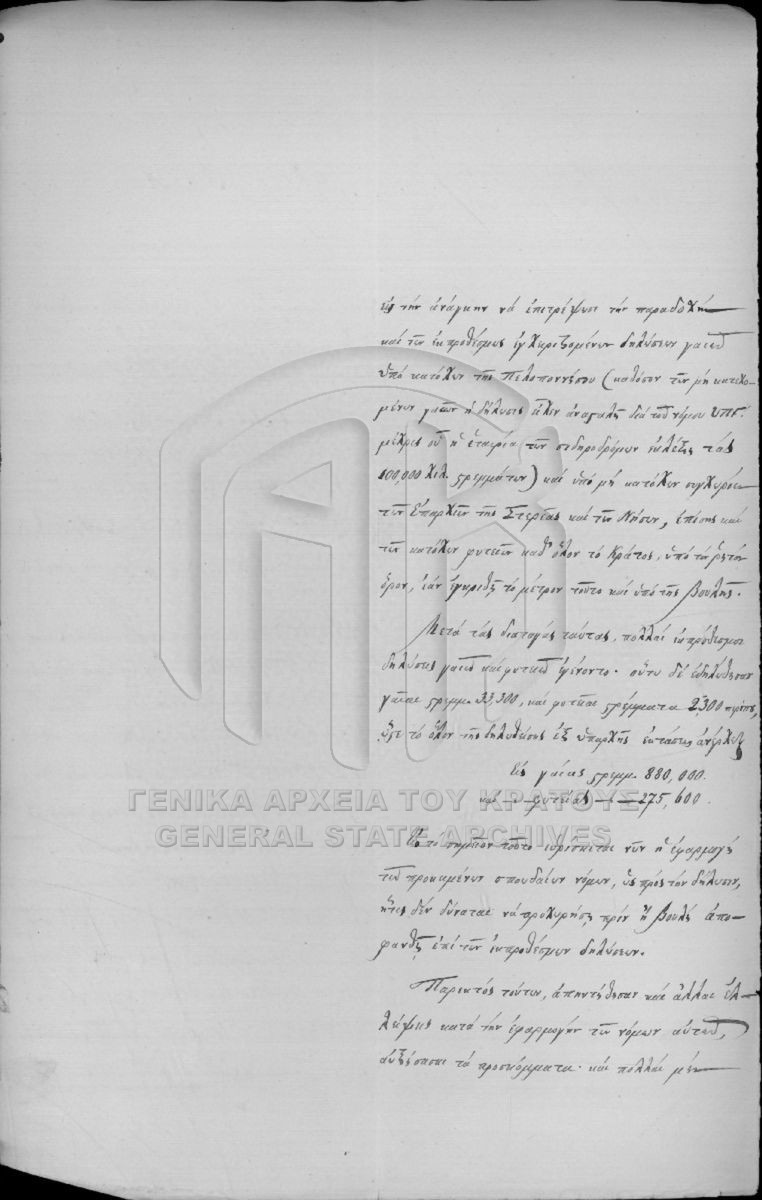 εἰς τὴν ἀνάγκην νὰ ἐπιτρέψωσι τὴν παραδοχὴν
καὶ τῶν ἐκπροθέσμως ἐγχειριζομένων δηλώσεων γαιῶν
ὑπὸ κατόχων τῆς Πελοποννήσου (καθόσον τῶν μὴ κατεχο-
μένων γαιῶν ἡ δήλωσις ἀνεστάλη διὰ τοῦ νόμου ΥΠΓ.
μέχρις οὗ ἡ ἑταιρία τῶν σιδηροδρόμων ἐκλέξῃ τὰς
100,000 χιλ. στρεμμάτων) καὶ ὑπὸ μὴ κατόχων
τῶν Ἐπαρχιῶν τῆς Στερεᾶς καὶ τῶν Νήσων, ἐπίσης καὶ
τῶν κατόχων φυτειῶν καθ' ὅλον τὸ Κράτος, ὑπὸ τὸν ῥητὸν
ὅρον, ἐὰν ἐγκριθῇ τὸ μέτρον τοῦτο καὶ ὑπὸ τῆς Βουλῆς.
Μετὰ τὰς διαταγὰς ταύτας, πολλαὶ ἐκπρόθεσμοι
δηλώσεις γαιῶν καὶ φυτειῶν ἐγένοντο. οὕτω δὲ ἐδηλώθησαν
γαῖαι στρεμμ. 33,300, καὶ φυτεῖαι στρέμματα 2,300 περίπου,
ὥστε τὸ ὅλον τῆς δηλωθείσης ἐξ ὑπαρχῆς ἐκτάσεως ἀνέρχεται
Εἰς γαίας στρεμμ. 880,000.
καὶ — φυτείας — 275,600.
Εἰς τὸ σημεῖον τοῦτο εὑρίσκεται νῦν ἡ ἐφαρμογὴ
τῶν προκειμένων σπουδαίων νόμων, ὡς πρὸς τὴν δήλωσιν,
ἥτις δὲν δύναται νὰ προχωρήσῃ πρὶν ἢ ἡ Βουλὴ ἀπο-
φανθῇ ἐπὶ τῶν ἐκπροθέσμων δηλώσεων.
Παρεκτὸς τούτων, ἀπηντήθησαν καὶ ἄλλαι ἐλ-
λείψεις κατὰ τὴν ἐφαρμογὴν τῶν νόμων αὐτῶν,
αὐξήσασαι τὰ προσκόμματα. καὶ πολλαὶ μὲν
ΓΕΝΙΚΑ ΑΡΧΕΙΑ ΤΟΥ ΚΡΑΤΟΥΣ
GENERAL STATE ARCHIVES